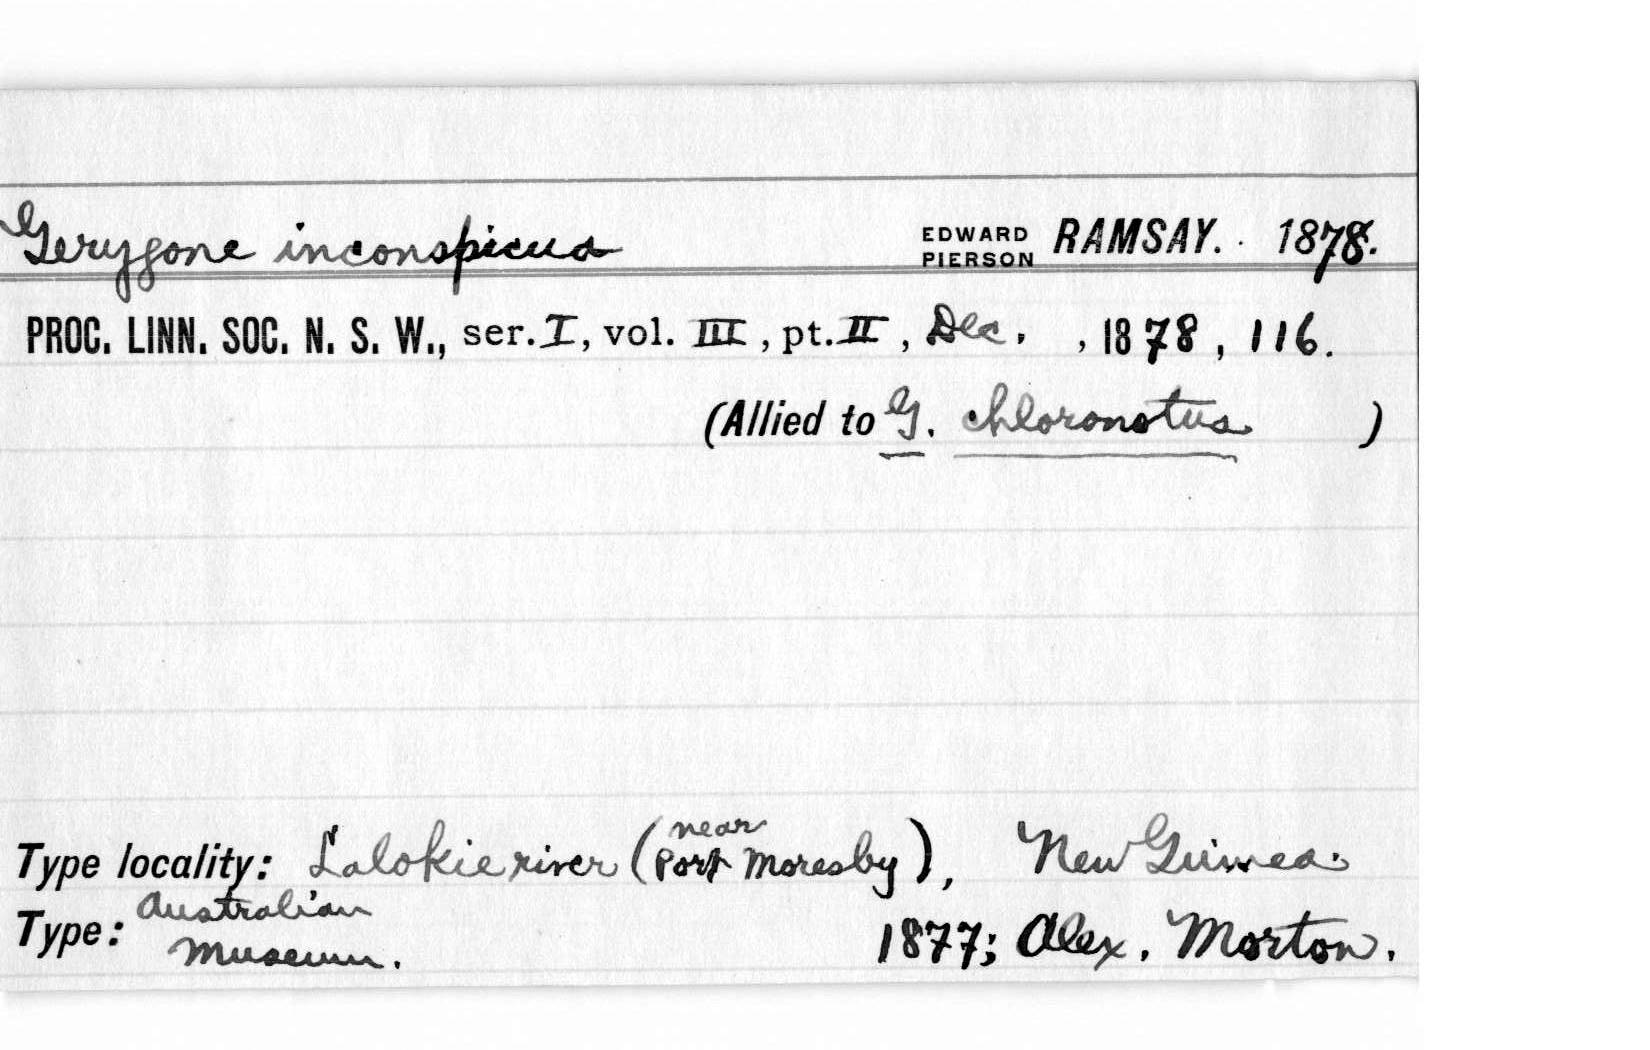 Gerygone inconspicua EDWARD PIERSON RAMSAY. 1878.
PROC. LINN. SOC. N. S. W., ser. I, vol. III, pt. II, Dec. , 1878, 116.
(Allied to G. chloronotus )
Type locality: Lalokie river (near Port Moresby), New Guinea.
Type: Australian Museum. 1877; Alex. Morton.